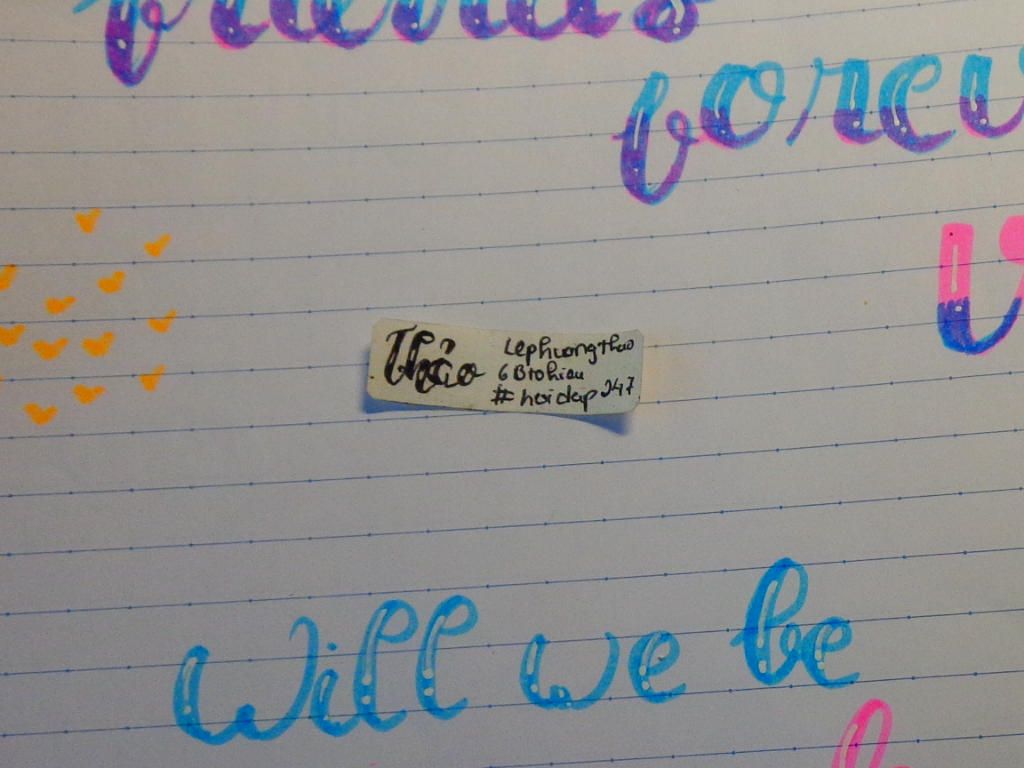 friends
forev
Thảo
Lephuongthao
6B Tohieu
#hoidap247
will we be